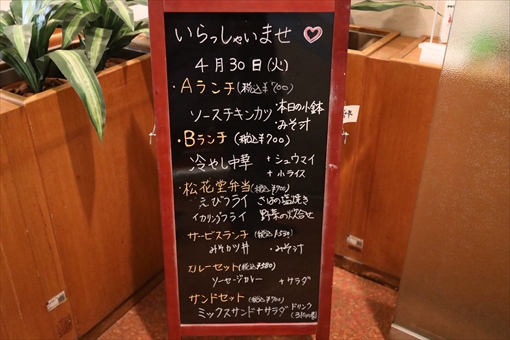 いらっしゃいませ
4月30日(火)
・Aランチ(税込¥700)
ソースチキンカツ ・本日の小鉢
・みそ汁
・Bランチ(税込¥700)
冷やし中華 +シュウマイ
+小ライス
・松花堂弁当(税込¥700)
えびフライ さばの塩焼き
イカリングフライ 野菜の炊合せ
サービスランチ(税込
みそカツ丼 ・みそ汁
カレーセット(税込¥580)
ソーセージカレー +サラダ
サンドセット(税込¥700)
ミックスサンド+サラダ ドリンク